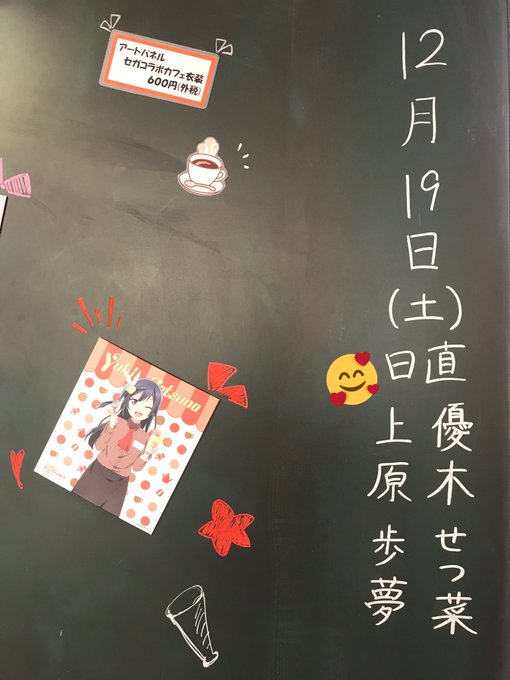 12月19日(土)
日直 優木 せつ菜
上原 歩夢
アートパネル
セガコラボカフェ衣装
600円(外税)
Yuki Setsuna